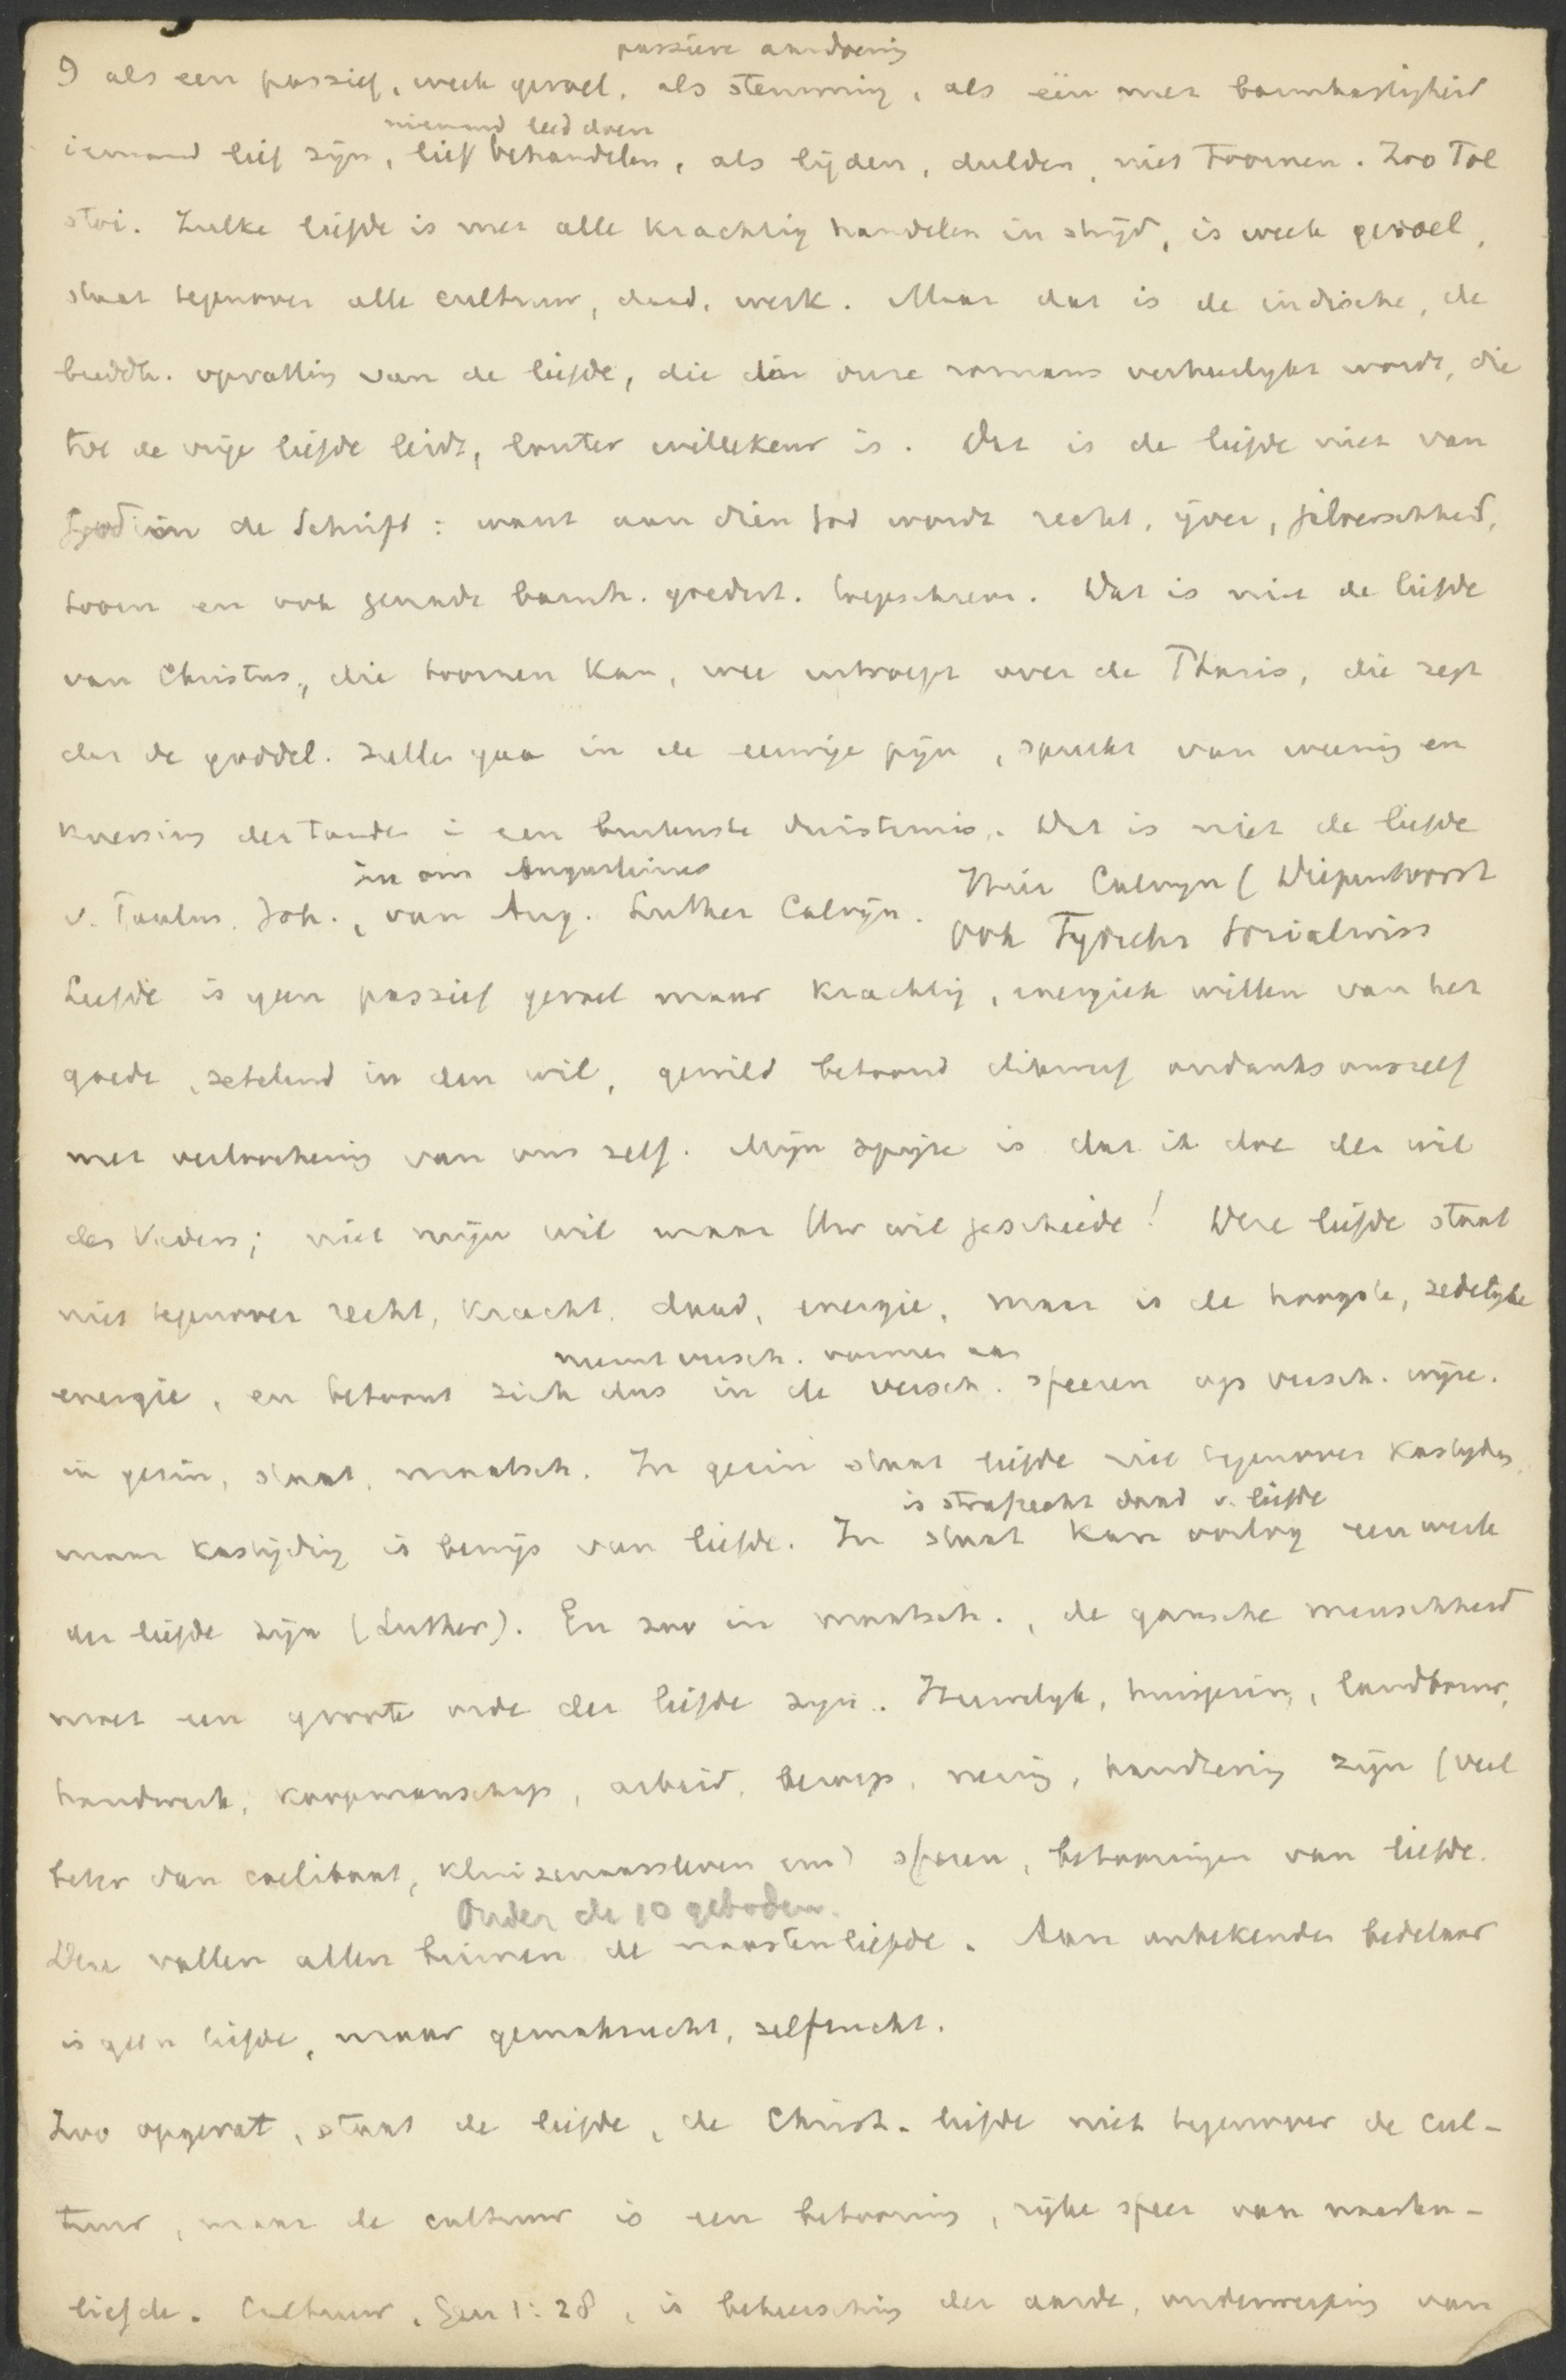 passieve aandoening
9 als een passief, week gevoel, als stemming, als een met barmhartigheid
niemand leed doen
iemand lief zijn, lief behandelen, als lijden, dulden, niet toornen. Zoo Tol
stoi. Zulke liefde is met alle krachtig handelen in strijd, is week gevoel,
staat tegenover alle cultuur, daad, werk. Maar dat is de indische, de
buddh. opvatting van de liefde, die in onze romans verheerlijkt wordt, die
tot de vrije liefde leidt, louter willekeur is. Dat is de liefde niet van
God in de Schrift: want aan dien God wordt recht, ijver, jaloerschheid,
toorn en ook genade barmh. goedert. toegeschreven. Dat is niet de liefde
van Christus, die toornen kan, wee uitroept over de Phariz, die zegt
dat de goddel. zullen gaan in de eeuwige pijn, spreekt van weening en
knersing der tanden in een buitenste duisternis. Dat is niet de liefde
in ons Augustinus
v. Paulus, Joh., van Aug. Luther Calvijn.
Hier Calvyn (Diepenhorst
ook Tydschr Socialwiss
Liefde is geen passief gevoel maar krachtig, energiek willen van het
goede, zetelend in den wil, gewild betoond dikwerf ondanks onszelf
met verloochening van ons zelf. Mijn spijze is dat ik doe den wil
des Vaders; niet mijn wil maar Uw wil geschiede! Deze liefde staat
niet tegenover recht, kracht, daad, energie, maar is de hoogste, zedelyke
neemt versch. vormen aan
energie, en betoont zich dus in de versch. sfeeren op versch. wijze.
in gezin, staat, maatsch. In gezin staat liefde niet tegenover kastyden,
is strafrecht daad v. liefde
maar kastijding is bewijs van liefde. In staat kan oorlog een werk
der liefde zijn (Luther). En zoo in maatsch., de gansche menschheid
moet een groote orde der liefde zijn. Huwelyk, huisgezin, landbouw,
handwerk, koopmanschap, arbeid, beroep, nering, handtering zijn (veel
beter dan caelibaat, kluizenaarsleven enz) sferen, betooningen van liefde.
Onder de 10 geboden.
Deze vallen allen binnen de naastenliefde. Aan onbekenden bedelaar
is geen liefde, maar gemakzucht, zelfzucht.
Zoo opgevat, staat de liefde, de Christ. liefde niet tegenover de cul-
tuur, maar de cultuur is een betooning, rijke sfeer van naasten-
liefde. Cultuur, Gen 1:28, is beheersching der aarde, onderwerping van